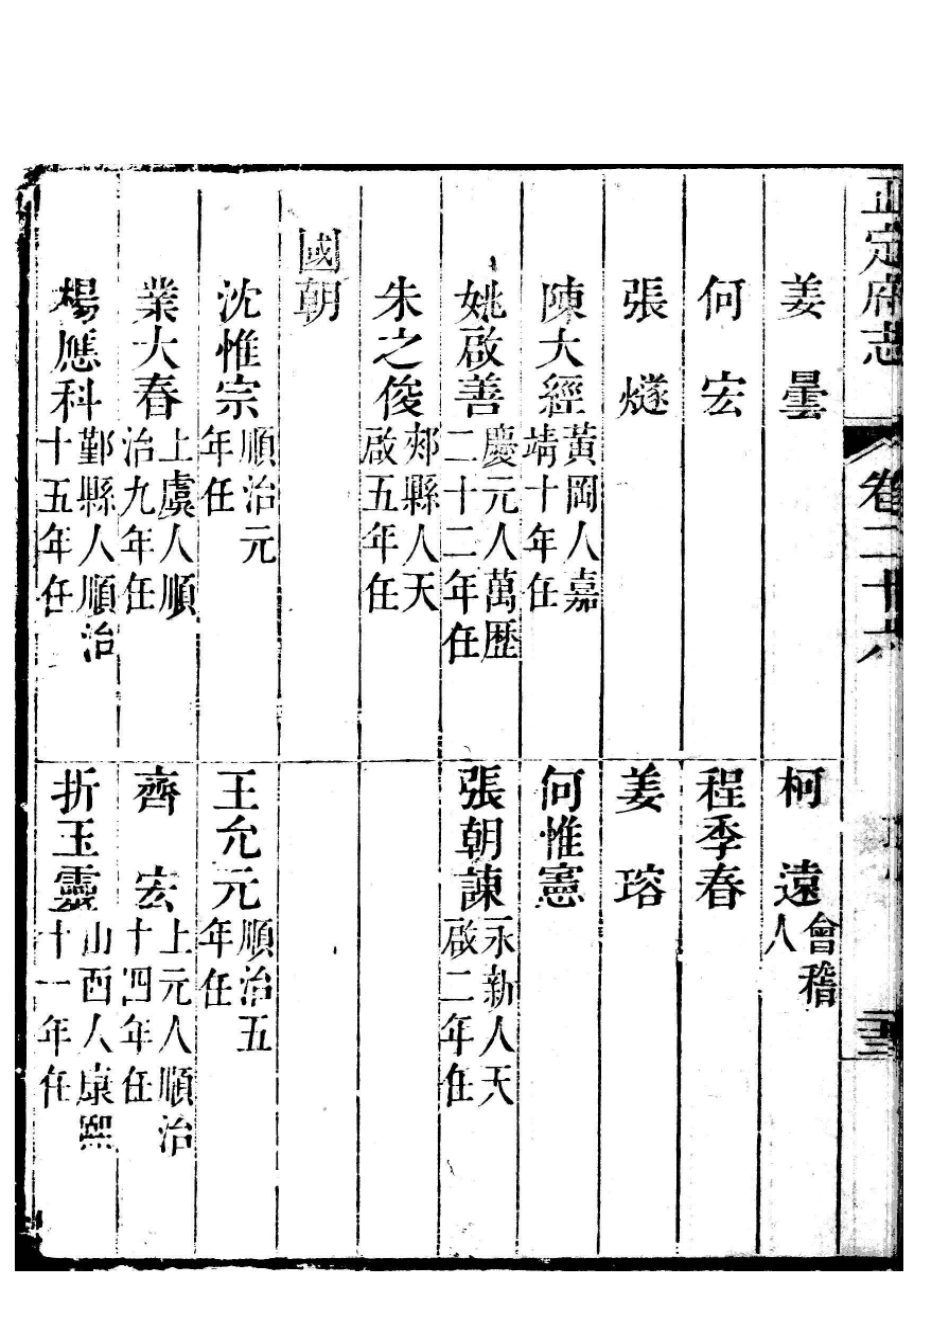 正定府志
卷二十六
姜曇
柯遠會稽人
何宏
程季春
張燧
姜瑢
陳大經黃岡人嘉靖十年任
何惟憲
姚啟善慶元人萬歷二十二年任
張朝諫永新人天啟二年任
朱之俊郟縣人天啟五年任
國朝
沈惟宗順治元年任
王允元順治五年任
業大春上虞人順治九年任
齊宏上元人順治十四年任
楊應科鄞縣人順治十五年任
折玉靈山西人康熙十一年任